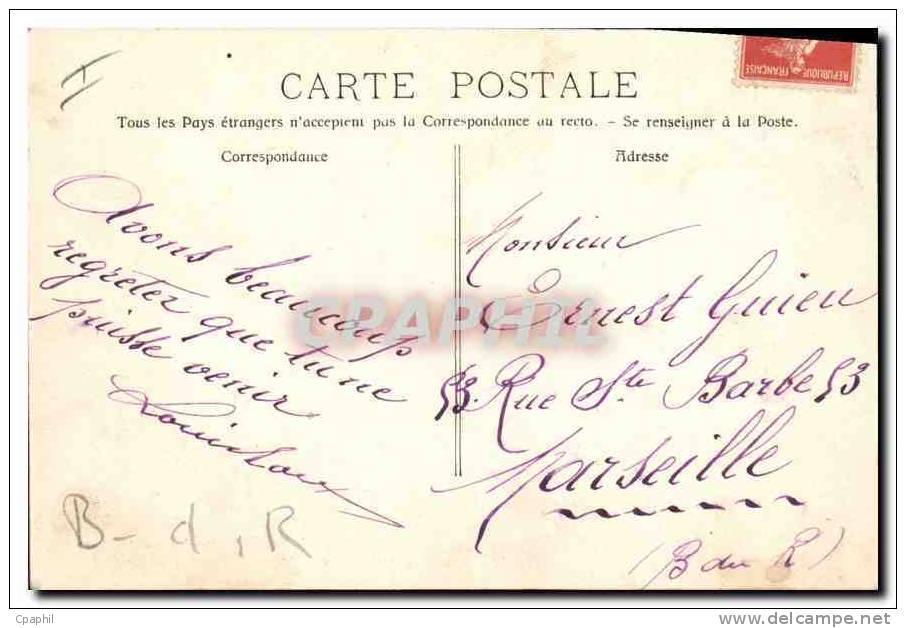 REPUBLIQUE FRANÇAISE
CARTE POSTALE
Tous les Pays étrangers n'acceptent pas la Correspondance au recto. - Se renseigner à la Poste.
Correspondance
Adresse
Avons beaucoup
regreter que tu ne
puisse venir
Monsieur
Ernest Guieu
53. Rue Ste Barbe 53
Marseille
(B du R)
B-d,R
CPAPHIL
Cpaphil
www.delcampe.net